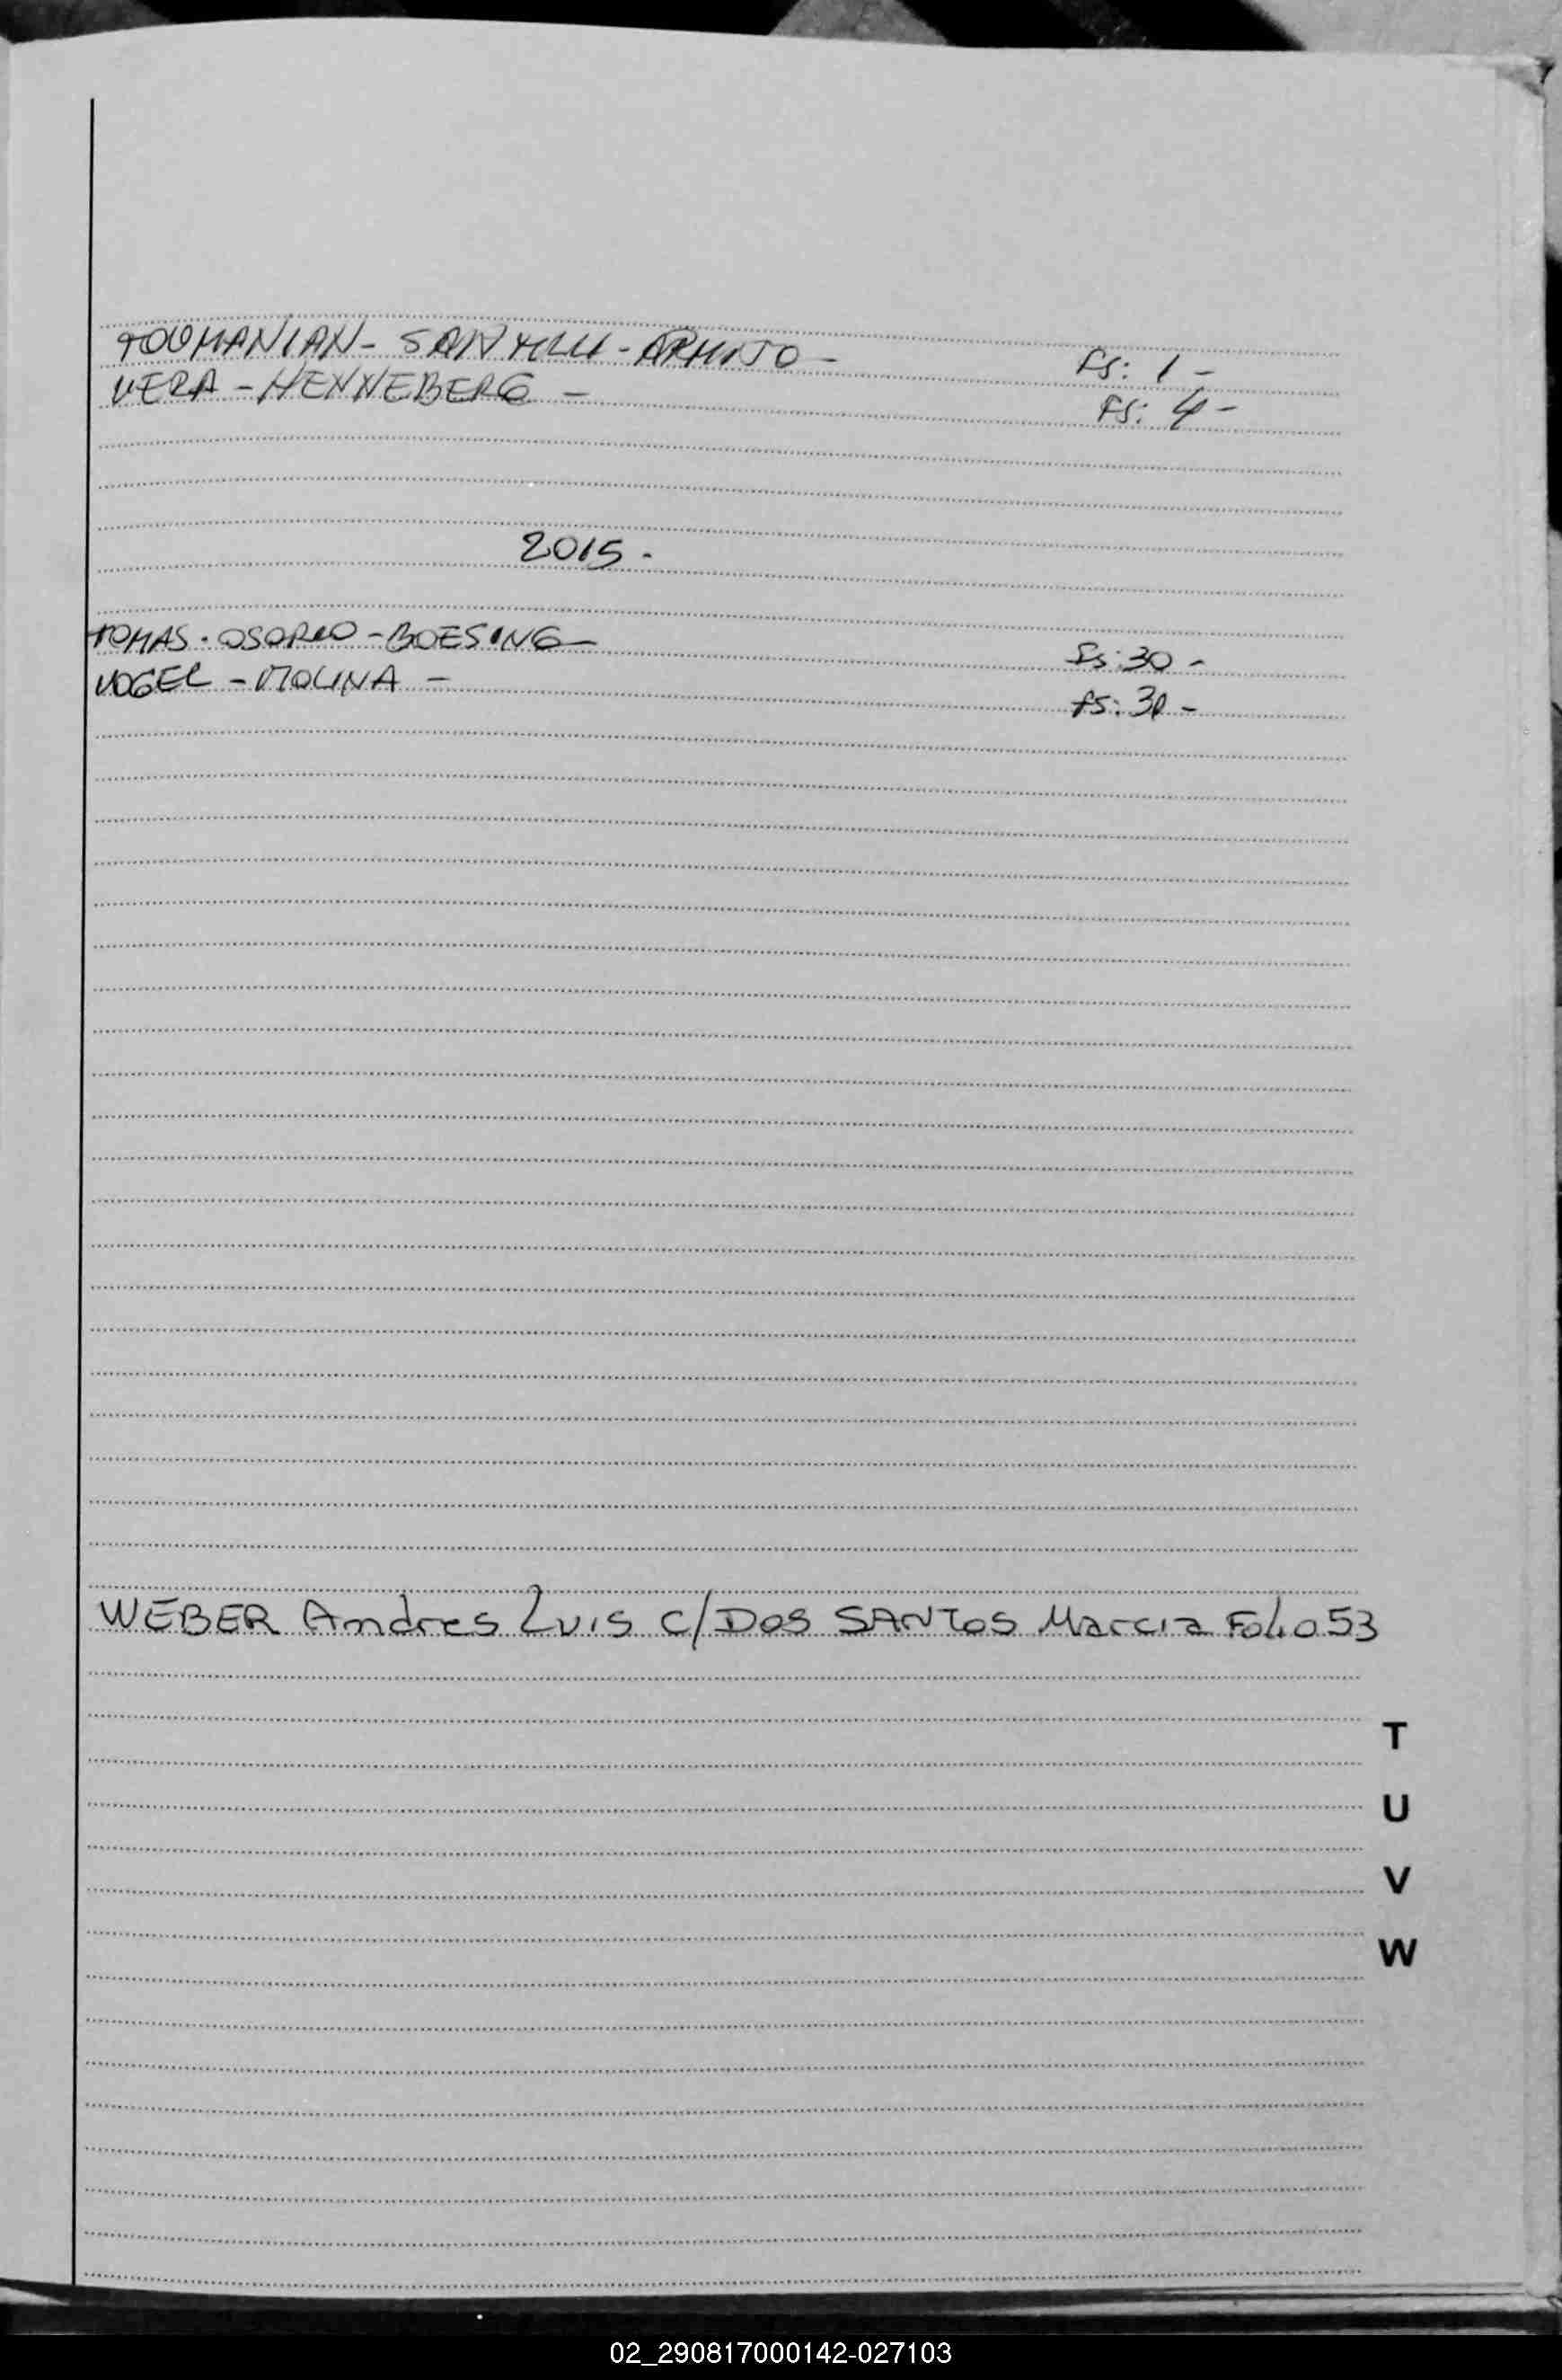 TOUMANIAN - - ARMIJO - FS: 1 -
VERA - HENNEBERG - FS: 4 -
2015 -
TOMAS - OSORIO - BOESING - fs: 30 -
VOGEL - MOLINA - fs: 31 -
WEBER Andres Luis c/ DOS SANTOS Marcia Folio 53
T
U
V
W
02_290817000142-027103